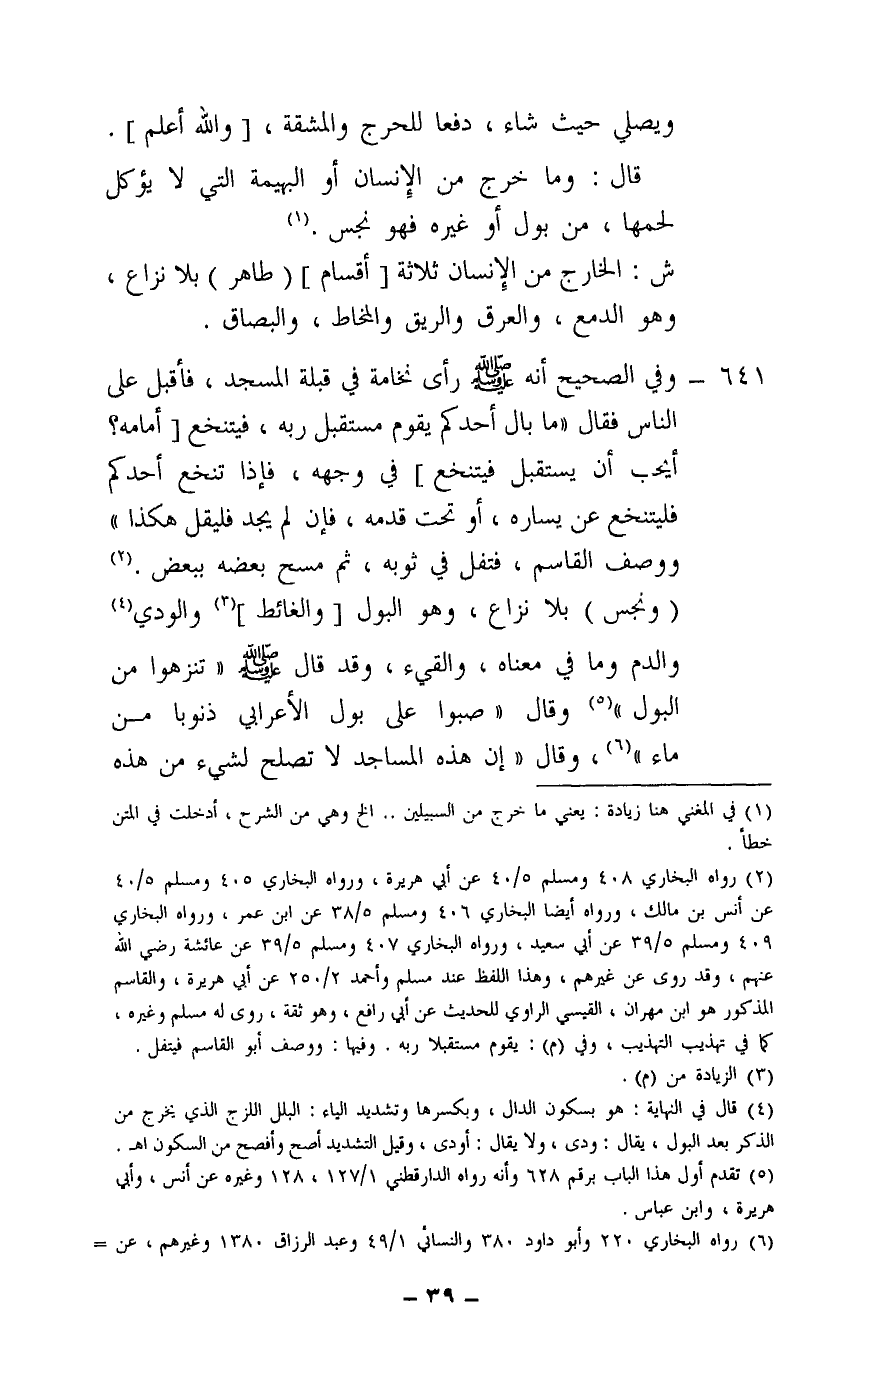 ويصلي حيث شاء ، دفعا للحرج والمشقة ، [ والله أعلم ] .
قال : وما خرج من الإنسان أو البهيمة التي لا يؤكل
لحمها ، من بول أو غيره فهو نجس .(١)
ش : الخارج من الإنسان ثلاثة [ أقسام ] ( طاهر ) بلا نزاع ،
وهو الدمع ، والعرق والريق والمخاط ، والبصاق .
٦٤١ – وفي الصحيح أنه ﷺ رأى نخامة في قبلة المسجد ، فأقبل على
الناس فقال «ما بال أحدكم يقوم مستقبل ربه ، فيتنخع [ أمامه؟
أيحب أن يستقبل فيتنخع ] في وجهه ، فإذا تنخع أحدكم
فليتنخع عن يساره ، أو تحت قدمه ، فإن لم يجد فليقل هكذا »
ووصف القاسم ، فتفل في ثوبه ، ثم مسح بعضه ببعض .(٢)
( ونجس ) بلا نزاع ، وهو البول [ والغائط ](٣) والودي(٤)
والدم وما في معناه ، والقيء ، وقد قال ﷺ « تنزهوا من
البول »(٥) وقال « صبوا على بول الأعرابي ذنوبا مـن
ماء »(٦) ، وقال « إن هذه المساجد لا تصلح لشيء من هذه
(١) في المغني هنا زيادة : يعني ما خرج من السبيلين .. الخ وهي من الشرح ، أدخلت في المتن
خطأ .
(٢) رواه البخاري ٤٠٨ ومسلم ٤٠/٥ عن أبي هريرة ، ورواه البخاري ٤٠٥ ومسلم ٤٠/٥
عن أنس بن مالك ، ورواه أيضا البخاري ٤٠٦ ومسلم ٣٨/٥ عن ابن عمر ، ورواه البخاري
٤٠٩ ومسلم ٣٩/٥ عن أبي سعيد ، ورواه البخاري ٤٠٧ ومسلم ٣٩/٥ عن عائشة رضي الله
عنهم ، وقد روى عن غيرهم ، وهذا اللفظ عند مسلم وأحمد ٢٥٠/٢ عن أبي هريرة ، والقاسم
المذكور هو ابن مهران ، القيسي الراوي للحديث عن أبي رافع ، وهو ثقة ، روى له مسلم وغيره ،
كما في تهذيب التهذيب ، وفي (م) : يقوم مستقبلا ربه . وفيها : ووصف أبو القاسم فيتفل .
(٣) الزيادة من (م) .
(٤) قال في النهاية : هو بسكون الدال ، وبكسرها وتشديد الياء : البلل اللزج الذي يخرج من
الذكر بعد البول ، يقال : ودى ، ولا يقال : أودى ، وقيل التشديد أصح وأفصح من السكون اهـ .
(٥) تقدم أول هذا الباب برقم ٦٢٨ وأنه رواه الدارقطني ١٢٧/١ ، ١٢٨ وغيره عن أنس ، وأبي
هريرة ، وابن عباس .
(٦) رواه البخاري ٢٢٠ وأبو داود ٣٨٠ والنسائي ٤٩/١ وعبد الرزاق ١٣٨٠ وغيرهم ، عن =
– ٣٩ –